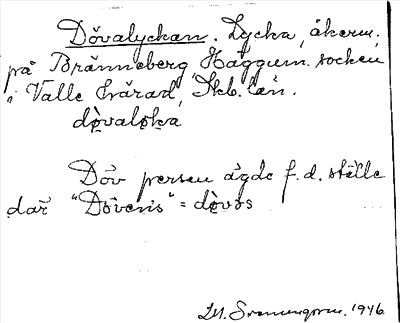 Dövalyckan. Lycka, åkerm.
på Bränneberg Häggum socken
i Valle härad, Skb. län.
dø̣valø̣ka
Döv persen ägde f.d. ställe
där "Dövens" = dø̣vəs
1946